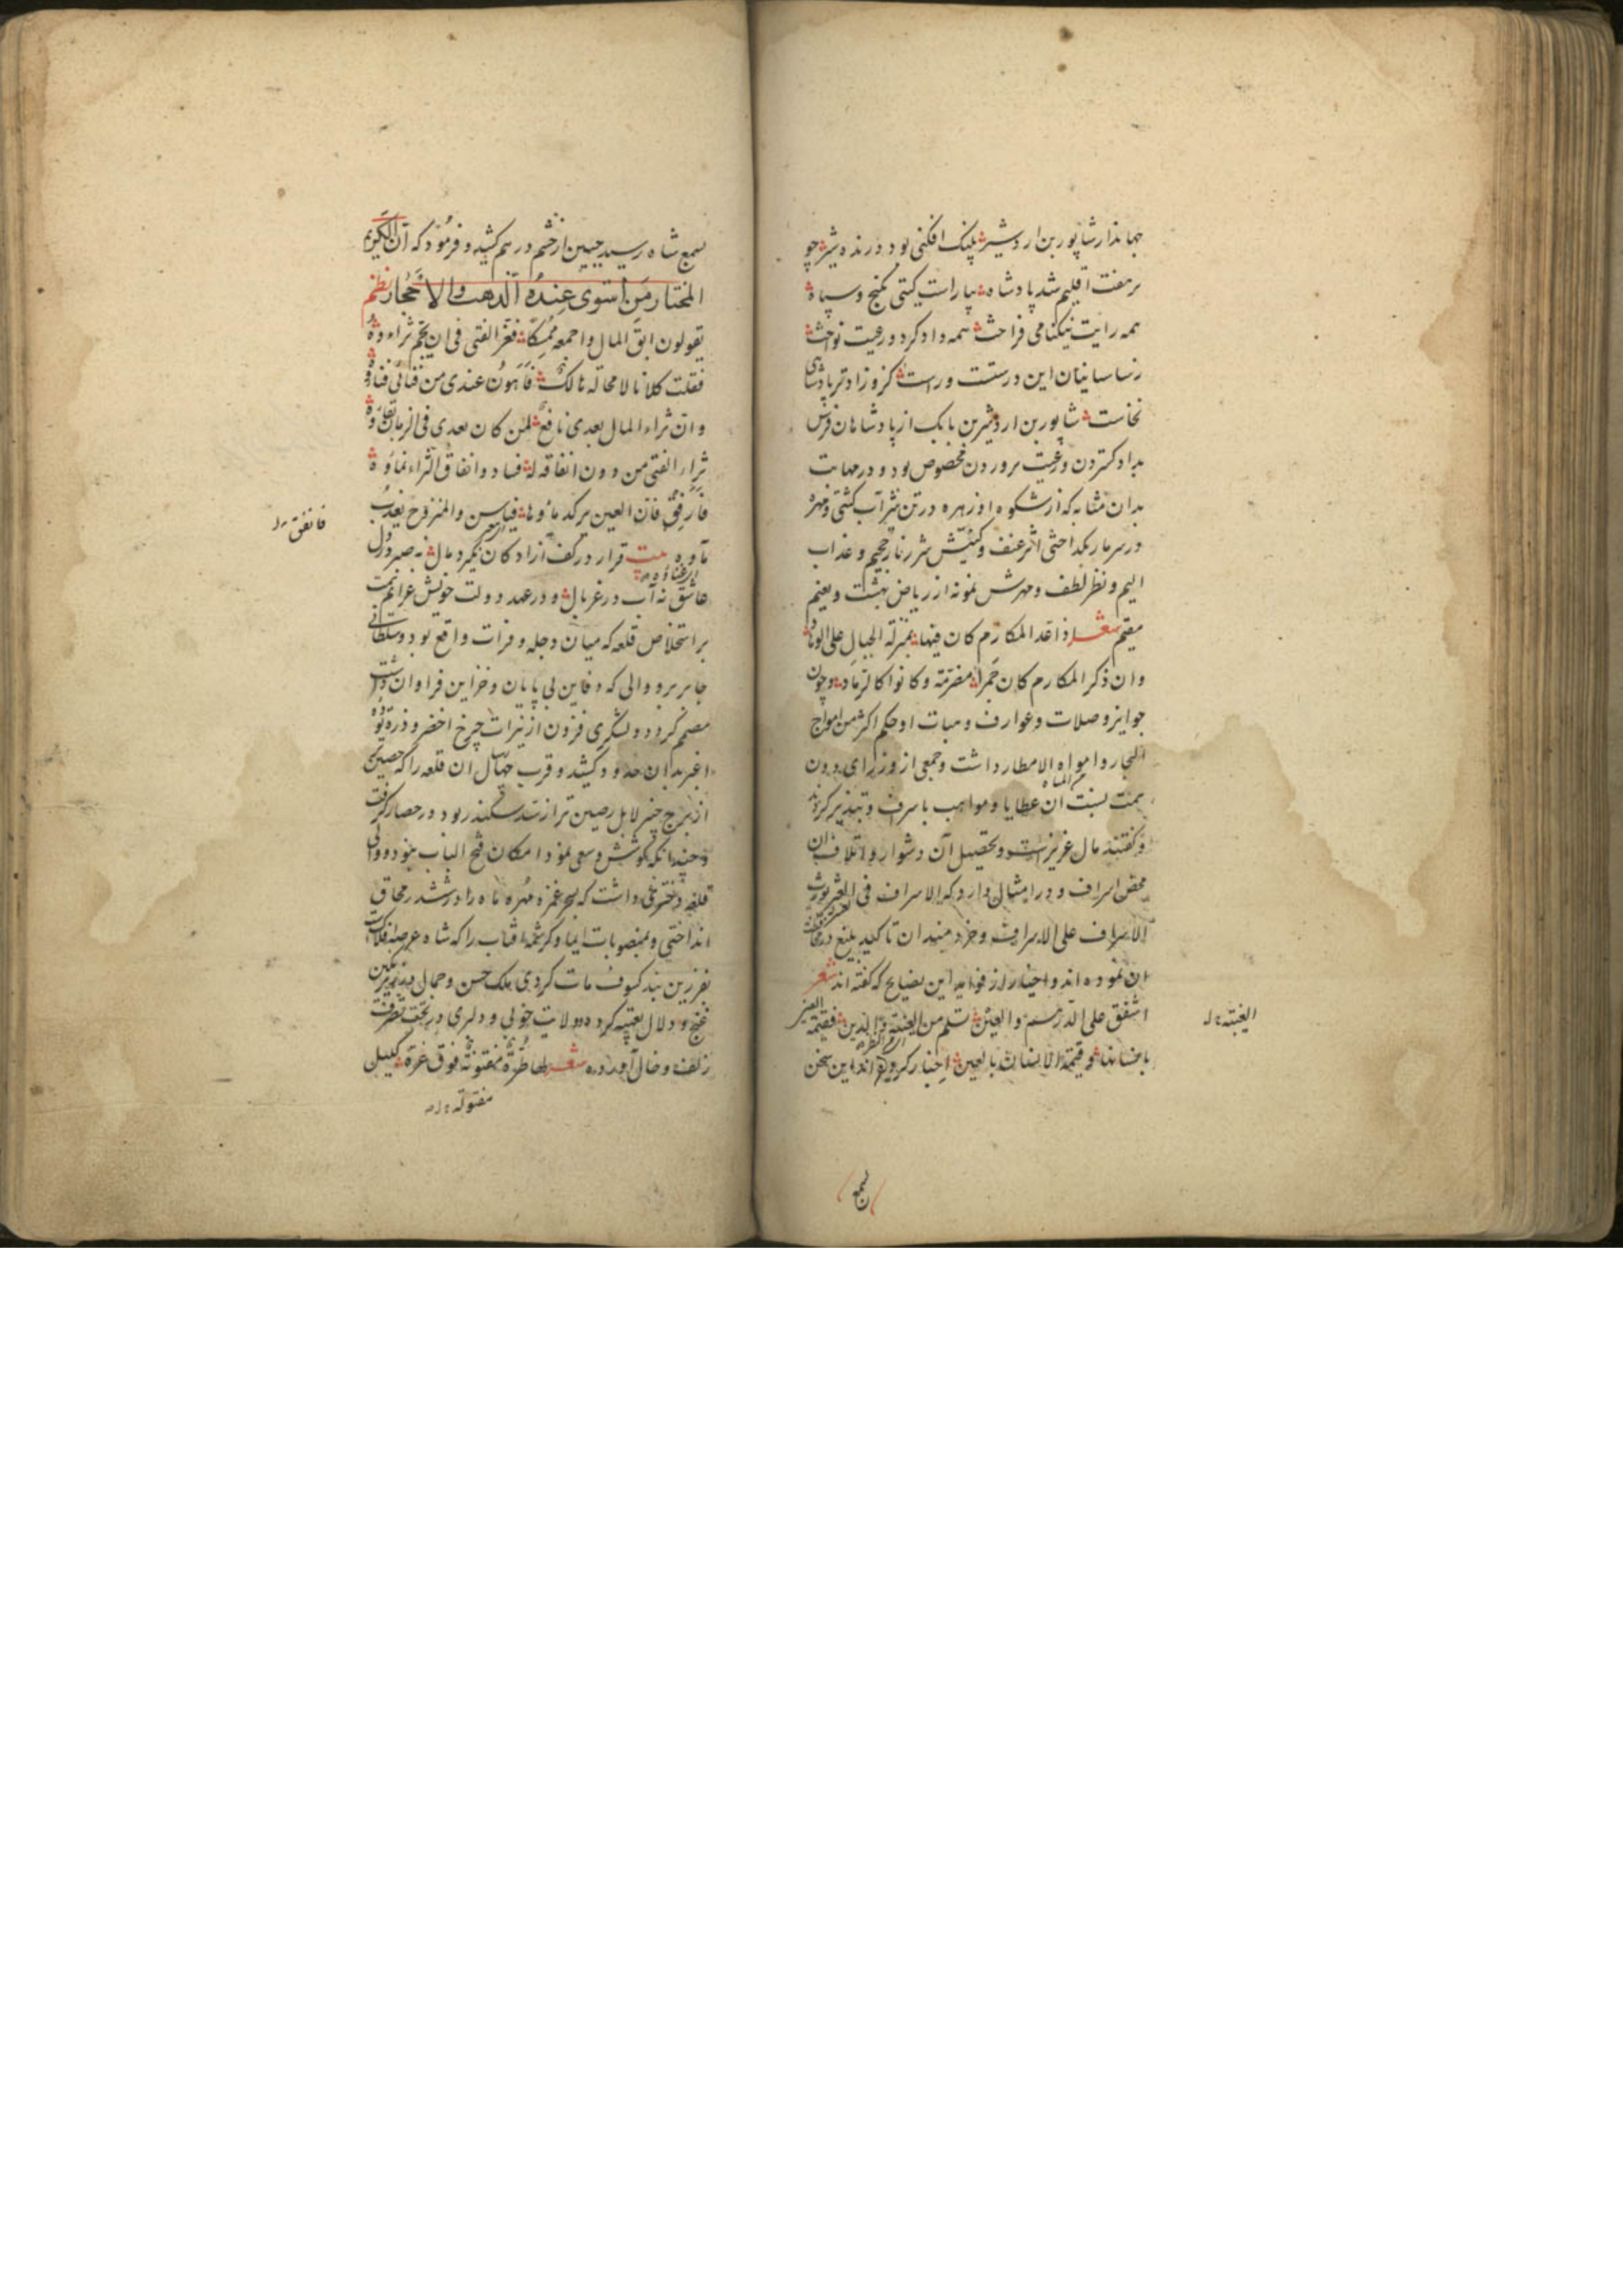 جهاندار شاپور بن اردشیر پلنک افکنی بود درنده شیر چو
بر هفت اقلیم شد پادشاه بیاراست کیتی بکنج و سپاه
همه رایت نیکنامی فراخت همه داد کرد و رعیت نواخت
ز ساسانیان این درستست و راست کزو زادتر پادشاهی
نخاست شاپور بن اردشیر بن بابک از پادشاهان فرس
بداد کستردن و رعیت پروردن مخصوص بود و در مهابت
بدان مثابه که از شکوه او زهره در تن شیر آب کشتی و مهره
در سر مار بکداختی اثر عنف و کینش شرر نار جحیم و عذاب
الیم و نظر لطف و مهرش نمونه از ریاض بهشت و نعیم
مقیم شعر اذا عد المکارم کان فیها بمنزلة الجبال علی الوهاد
وان ذکر المکارم کان جمرا مضرمة وکانوا کالرماد و چون
جوایز و صلات و عوارف و هبات او حکم اکثر من امواج
البحار و امواه الامطار داشت و جمعی از وزرای دون
همت نسبت ان عطایا و مواهب باسرف و تبذیر کردند
و کفتند مال عزیزست و تحصیل آن دشوار و اتلاف ان
محض اسراف و در امثال دارد که الاسراف فی یورث
الاشراف علی الاسراف و خردمندان تاکید بلیغ در
ان نموده اند و اختیار از فواید این نصایح که کفته اند شعر
اشفق علی الدرهم والعین تسلم من العینة والدین فقیمة العین
بانسانها وقیمة الانسان بالعین اختیار کرده اند این سخن
الغبنه
بسمع
بسمع شاه رسید جبین از خشم در هم کشید و فرمود که ان الکریم
المختار من استوی عنده الذهب والاحجار نظم
یقولون ابق المال واجمعه ممسکا فعز الفتی فی ان یجم ثراءوه
فقلت کلانا لا محالة هالک فاهون عندی من فنائی فناوه
وان ثراء المال بعدی نافع لمن کان بعدی فی الزمان بقاوه
ثراء الفتی من دون انفاقه له فساد وانفاق الثراء نماوه
فارفق فان العین یرکد ماؤها فیاسن والمنزوح یعذب
ماوه بیت قرار در کف آزادکان نکیرد مال نه صبر در دل
عاشق نه آب در غربال و در عهد دولت خویش عزایم همت
بر استخلاص قلعه که میان دجله و فرات واقع بود و سلطانی
جابر برو والی که دفاین بی پایان و خزاین فراوان داشت
مصمم کرد و لشکری فزون از نیرات چرخ اخضر و ذره توده
اغبر بدان حدود کشید و قرب چهار سال ان قلعه را که حصین
از برج چنبر لا بل رصین تر از سد سکندر بود در حصار کرفت
و چندانکه کوشش و سعی نمود امکان فتح الباب نبود و والی
قلعه دختری داشت که بسحر غمزه مهره ماه را در ششدر محاق
انداختی و بمنصوبات ایما و کرشمه افتاب را که شاه عرصه افلاکست
بفرزین بند کسوف مات کردی ملک حسن و جمال بزیر نکین
غنج و دلال تعبیه کرده و ولایت خوبی و دلبری در تحت تصرف
زلف و خال آورده شعر لها طرة مفتونة فوق غرة کلیل
فانفق
مفتولة